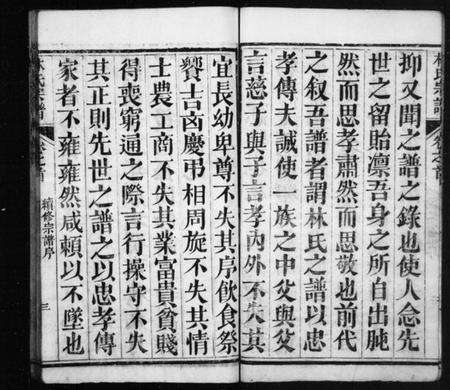 抑又聞之譜之錄也使人念先
世之留貽凛吾身之所自出肫
然而思孝肅然而思敬也前代
之叙吾譜者謂林氏之譜以忠
孝傳夫誠使一族之中父與父
言慈子與子言孝内外不失其
宜長幼卑尊不失其序飲食祭
饗吉凶慶弔相周旋不失其情
士農工商不失其業富貴貧賤
得喪窮通之際言行操守不失
其正則先世之譜之以忠孝傳
家者不雍雍然咸賴以不墜也
續修宗譜序
三